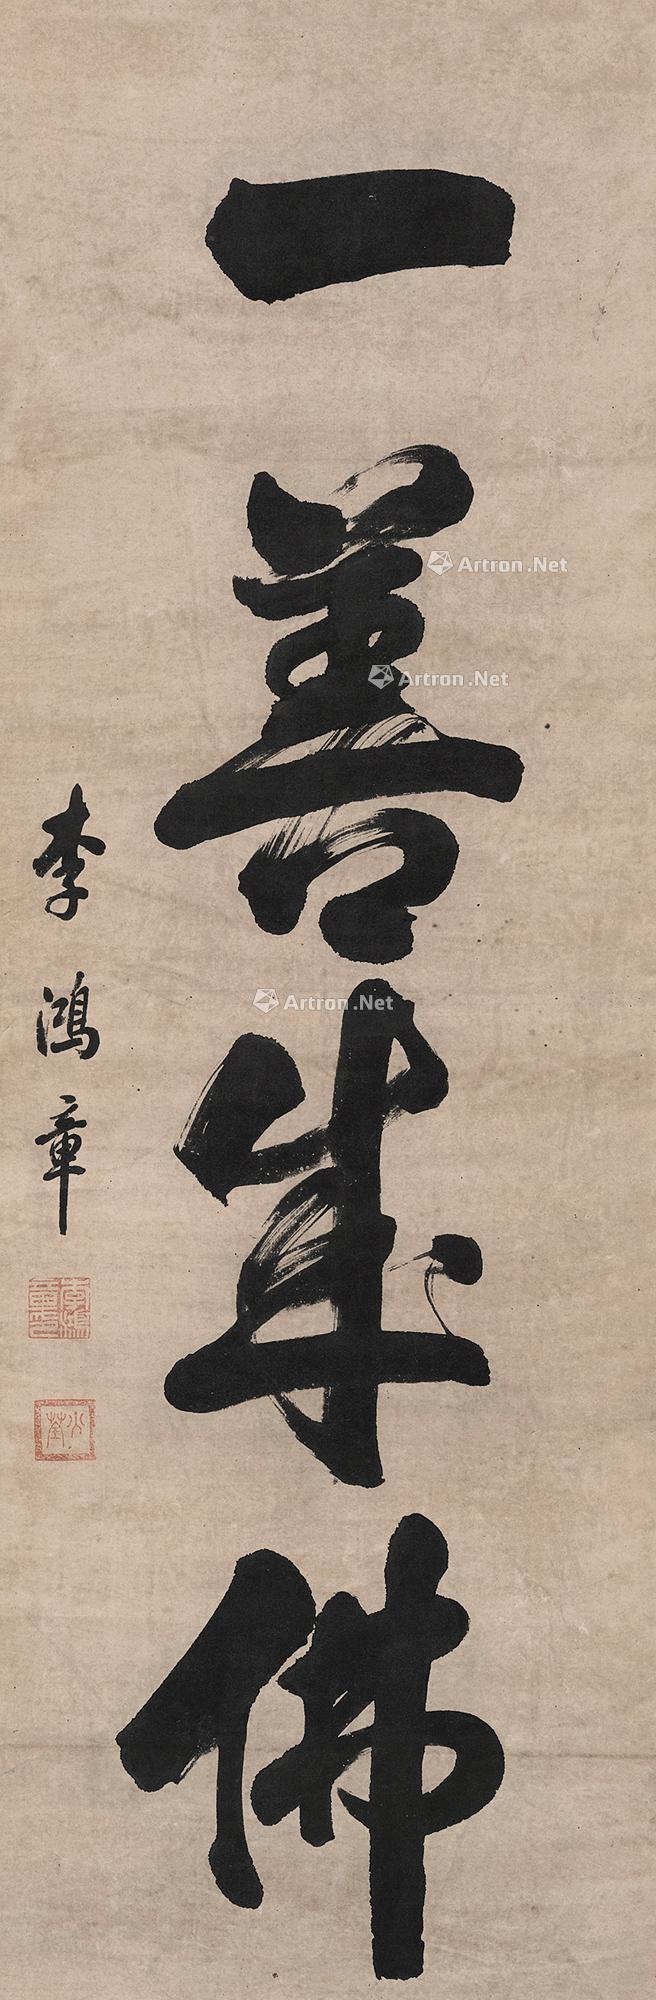 一善成佛
李鴻章
Artron.Net
Artron.Net
Artron.Net